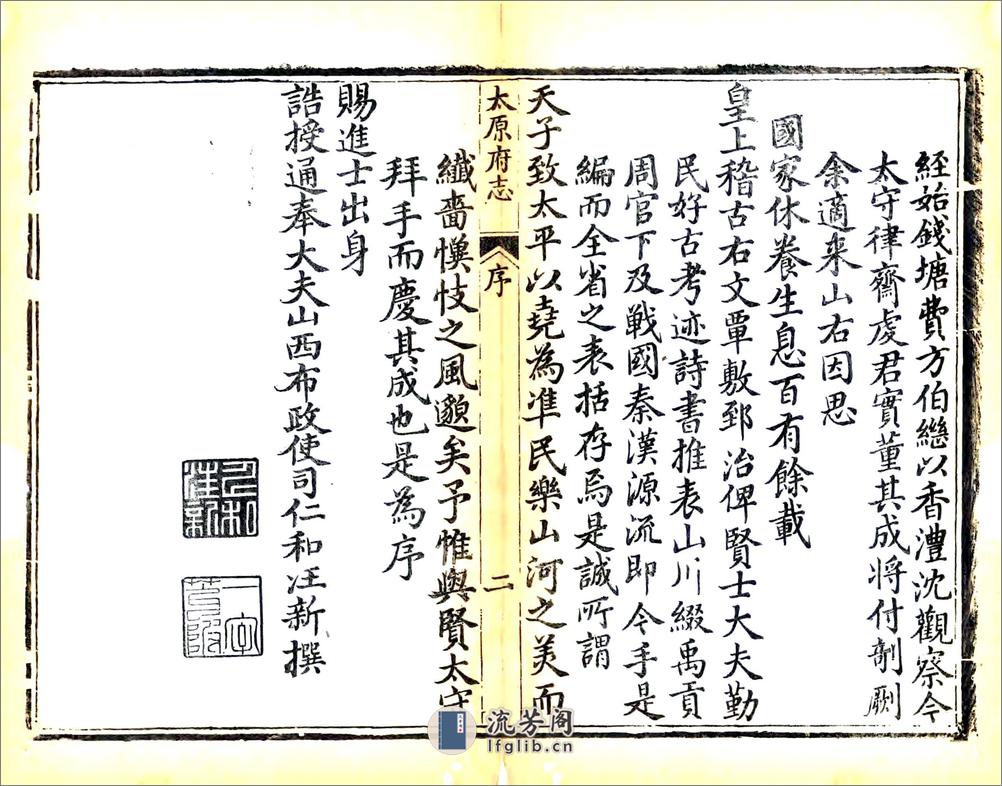 經始錢塘費方伯繼以香澧沈觀察今
太守律齋虔君實董其成將付剞劂
余適来山右因思
國家休養生息百有餘載
皇上稽古右文覃敷郅治俾賢士大夫勤
民好古考迹詩書推表山川綴禹貢
周官下及戰國秦漢源流即今手是
編而全省之表括存焉是誠所謂
天子致太平以堯為準民樂山河之美而
太原府志
序
二
纖嗇懻忮之風邈矣予惟與賢太守
拜手而慶其成也是為序
賜進士出身
誥授通奉大夫山西布政使司仁和汪新撰
仁和
汪新
流芳阁
lfglib.cn